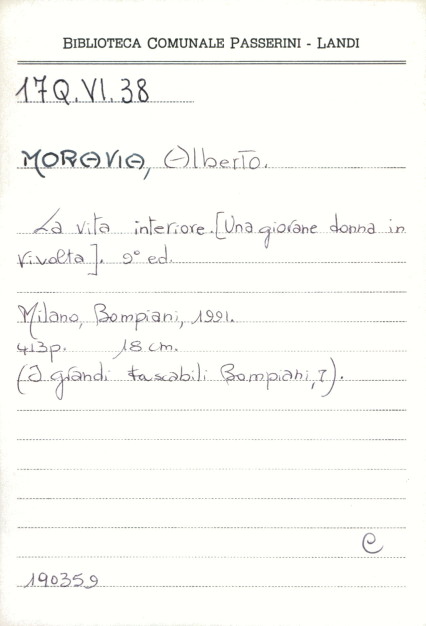 BIBLIOTECA COMUNALE PASSERINI - LANDI
17Q.VI.38
MORAVIA, Alberto.
La vita interiore. [Una giovane donna in
rivolta]. 9° ed.
Milano, Bompiani, 1991.
413p. 18 cm.
(I grandi tascabili Bompiani, 7).
C
190359